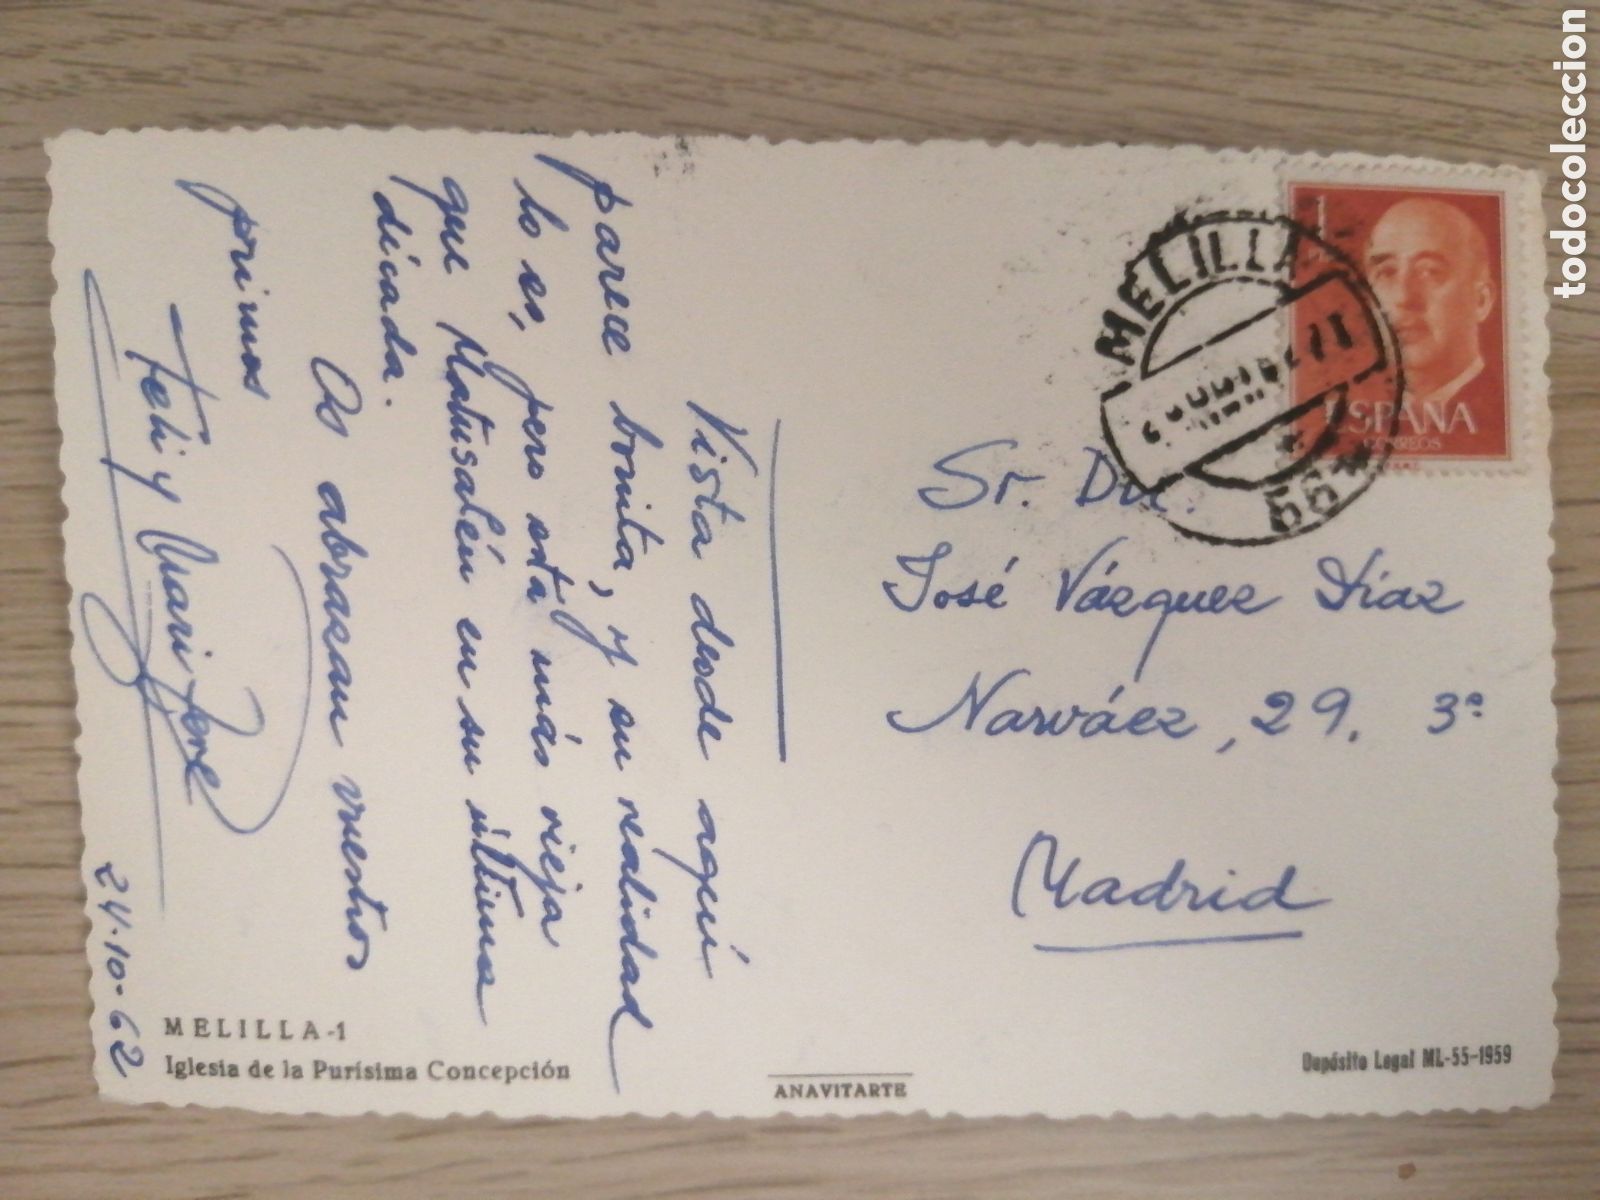 Vista desde aquí
parece bonita, y en realidad
lo es, pero está más vieja
que Matusalén en su última
dicada.
Os abrazan vuestros
primos
Feli y Mari Jose
24-10-62
MELILLA-1
Iglesia de la Purísima Concepción
ANAVITARTE
1
ESPAÑA
CORREOS
MELILLA
Sr. Dn.
José Vázquez Díaz
Narváez, 29. 3º
Madrid
Depósito Legal ML-55-1959
todocoleccion